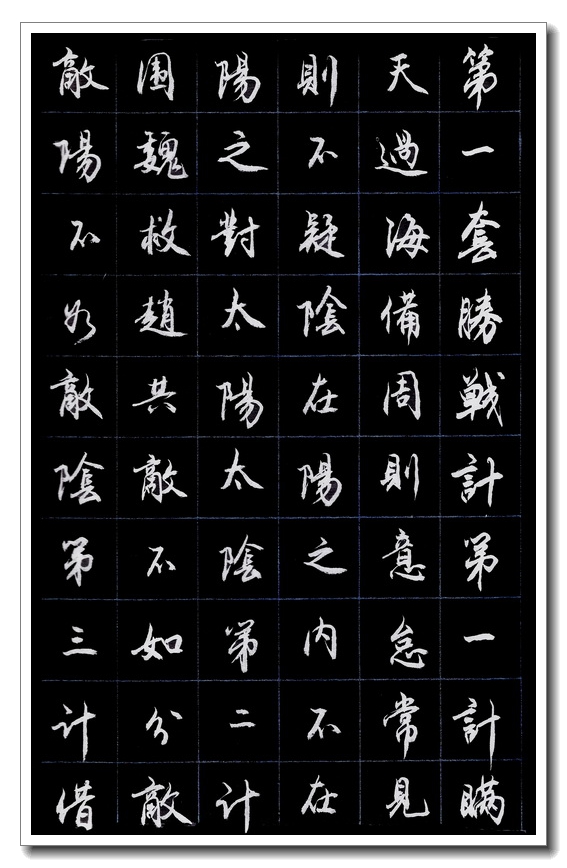 第一套勝戦計第一計瞞
天過海備周則意怠常見
則不疑陰在陽之内不在
陽之對太陽太陰第二计
圍魏救趙共敵不如分敵
敵陽不如敵陰第三计借